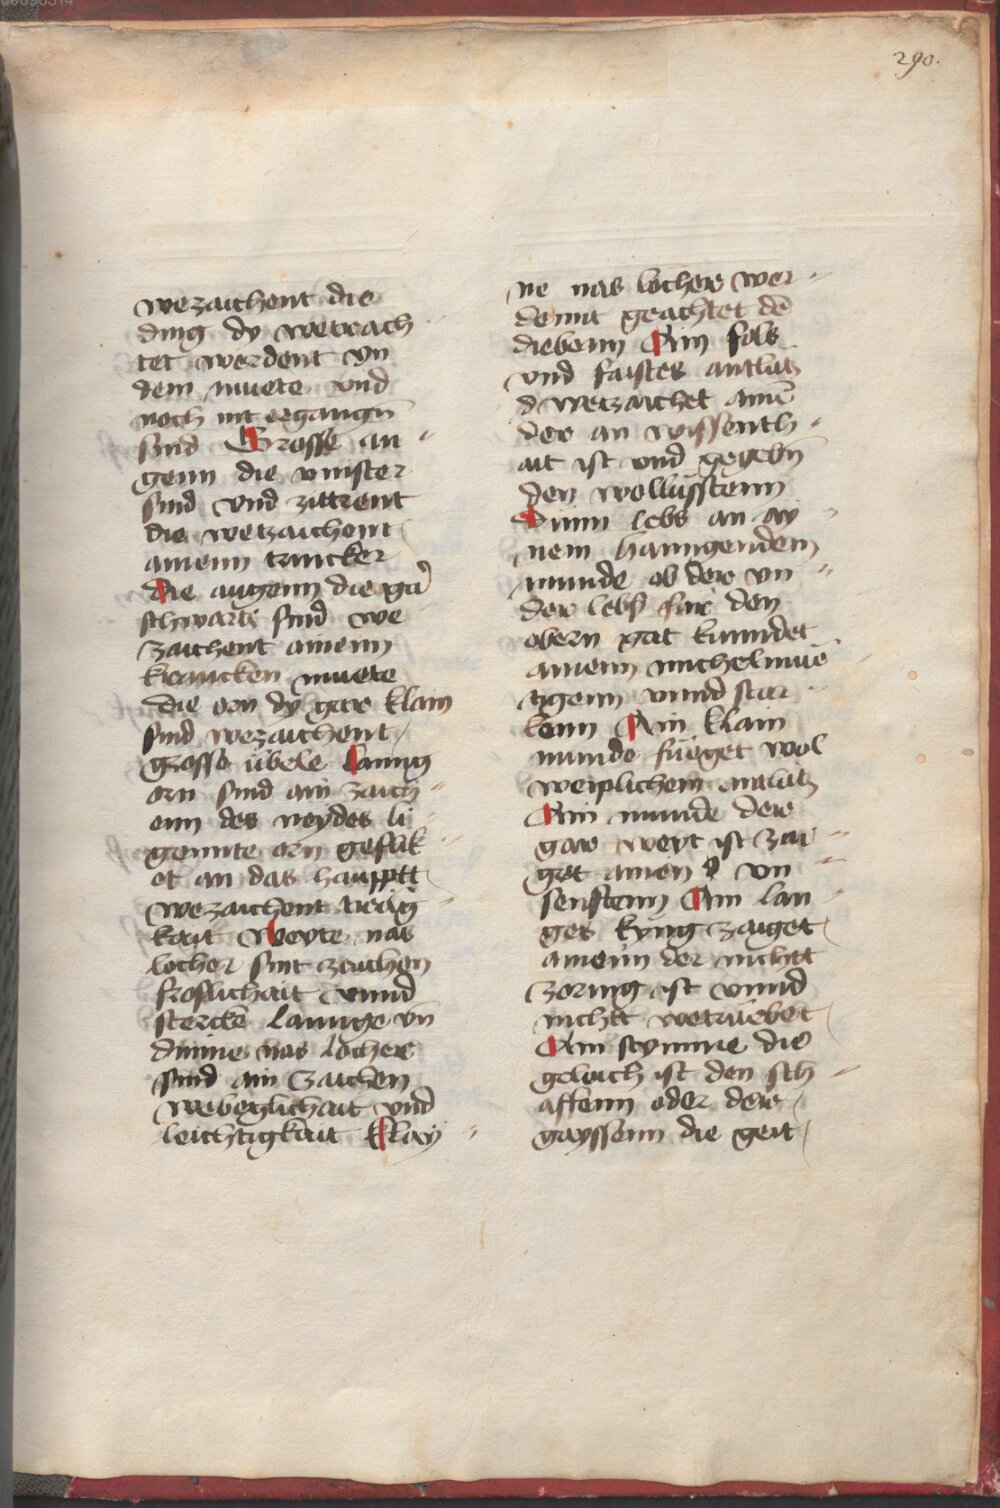 290.
wezaichent die
ding dy wetrach
tet werdent vn
dem muete vnd
noch nit ergangn̄
sind Grosse au
genn die vinster
sind vnd zittrent
die wetzaichent
ainenn trincker
Die augenn die gar
schwartz sind we
zaichent ainenn
krancken muete
die orn dy gar klain
sind wezaichent
grosse übele Lanng
orn sind ain zaich
enn des neydes li
gennte orn geflik
et an das haupptt
wezaichent träg
kait Weyte nas
locher sint zaichen
froslichait vnnd
stercke Lannge vn̄
dinne nas locher
sind ain Zaichen
webeglichait vnd
leichtigkait Klay
ne nas locher wer
dennt geachtet dē
diebenn Ain fols
vnd faistes antlutz
d wetzaichet ainē
der an wissenth
ait ist vnd gegebn̄
den wollüsstenn
Dünn lebs an ay
nem hanngenden
munde ob der vn
der lebs für den
obern gat kunndet
ainenn michelmüe
tigenn vnnd star
kenn Ain klain
munde füeget wol
weiplichem antlütz
Ain munde der
gar weyt ist zai
get ainen vn
senftenn Ain lan
ges kyng zaiget
ainenn der nichtt
zornig ist vnnd
nichtt wetrüebet
Ain stymme die
geleich ist den sch
affenn oder der
gayssenn die geit